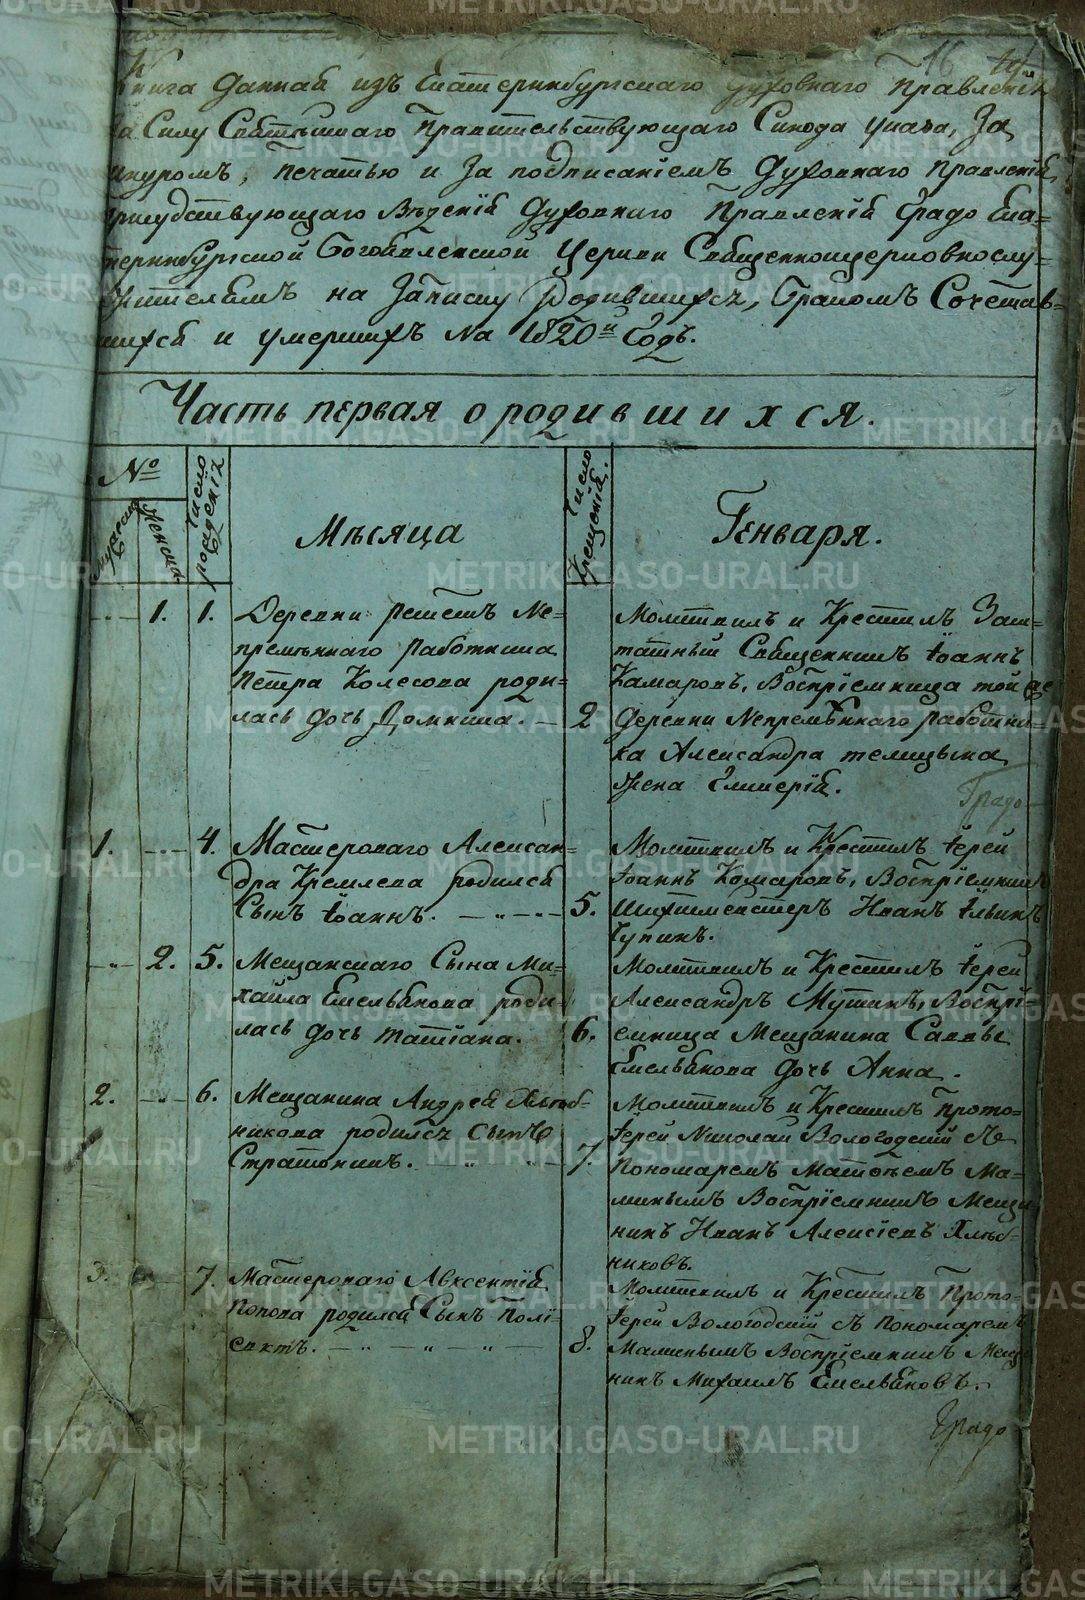 16
Книга данная изъ Екатеринбургскаго Духовнаго Правленія
Силу Святѣйшаго Правительствующаго Синода указа, За
шнуромъ, печатью и За подписаніемъ Духовнаго Правленія
присудствующаго Вѣденія Духовнаго Правленія Градо Ека=
теринбургской Богоявленской Церкви Священноцерковнослу=
жителямъ на Записку Родившихся, бракомъ Сочетав=
шихся и умершихъ на 1820й Годъ.
Часть первая о родившихся.
№
мужеска
Женска
Число рожденія
Мѣсяца
Число Крещенія.
Генваря.
1. 1. Деревни Решетъ Не=
премѣннаго работника
Петра Колесова роди=
лась дочь Домника. 2
Молитвилъ и Крестилъ Заш=
татный Священникъ Іоаннъ
Комаровъ, Воспріемница той же
деревни Непремѣннаго работни=
ка Александра
Жена Гликерія.
Градо
1. 4. Мастероваго Алексан=
дра Кремлева родился
Сынъ Іоаннъ. 5.
Молитвилъ и Крестилъ Іерей
Іоаннъ Комаровъ, Воспріемникъ
Шихтмейстеръ Иванъ Ильинъ
Чупинъ.
2. 5. Мещанскаго Сына Ми=
хайла Емельянова роди=
лась дочь Татіана. 6.
Молитвилъ и Крестилъ Іерей
Александръ Мутинъ, Воспрі=
емница Мещанина Саввы
Емельянова дочь Анна.
2. 6. Мещанина Андрея Хлѣб=
никова родился Сынъ
Стратоникъ. 7.
Молитвилъ и Крестилъ Прото=
іерей Николай Вологодскій съ
Пономаремъ Матвѣемъ Ма=
минымъ Воспріемникъ Меща
нинъ Иванъ Алексіевъ Хлѣб=
никовъ.
3. 7. Мастероваго Авксентія
Попова родился Сынъ Полі=
евктъ. 8.
Молитвилъ и Крестилъ Прото=
іерей Вологодскій съ Пономаремъ
Маминымъ Воспріемникъ Меща
нинъ Михаилъ Емельяновъ.
Градо
METRIKI.GASO-URAL.RU